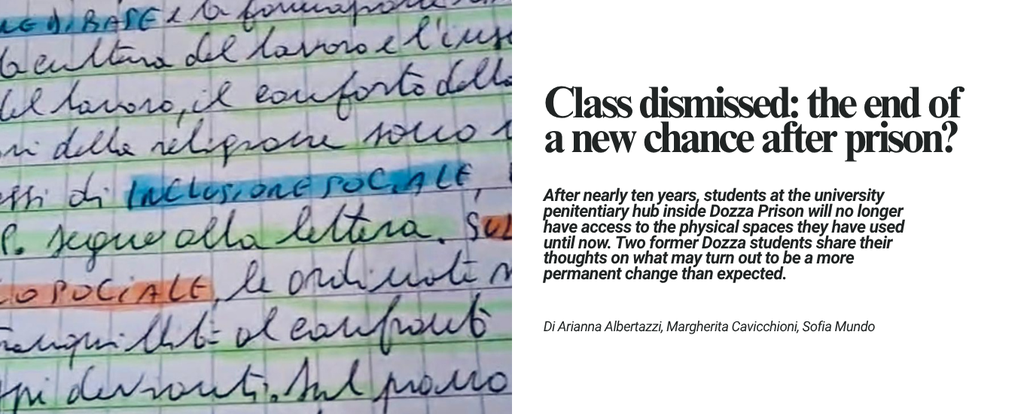 DI BASE e la formazione
la cultura del lavoro e l'inse
del lavoro, il conforto della
della religione sono
di INCLUSIONE SOCIALE,
P. segue alla lettera. Sul
SOCIALE, le ordinate
al confronto
Sul piano
Class dismissed: the end of
a new chance after prison?
After nearly ten years, students at the university
penitentiary hub inside Dozza Prison will no longer
have access to the physical spaces they have used
until now. Two former Dozza students share their
thoughts on what may turn out to be a more
permanent change than expected.
Di Arianna Albertazzi, Margherita Cavicchioni, Sofia Mundo